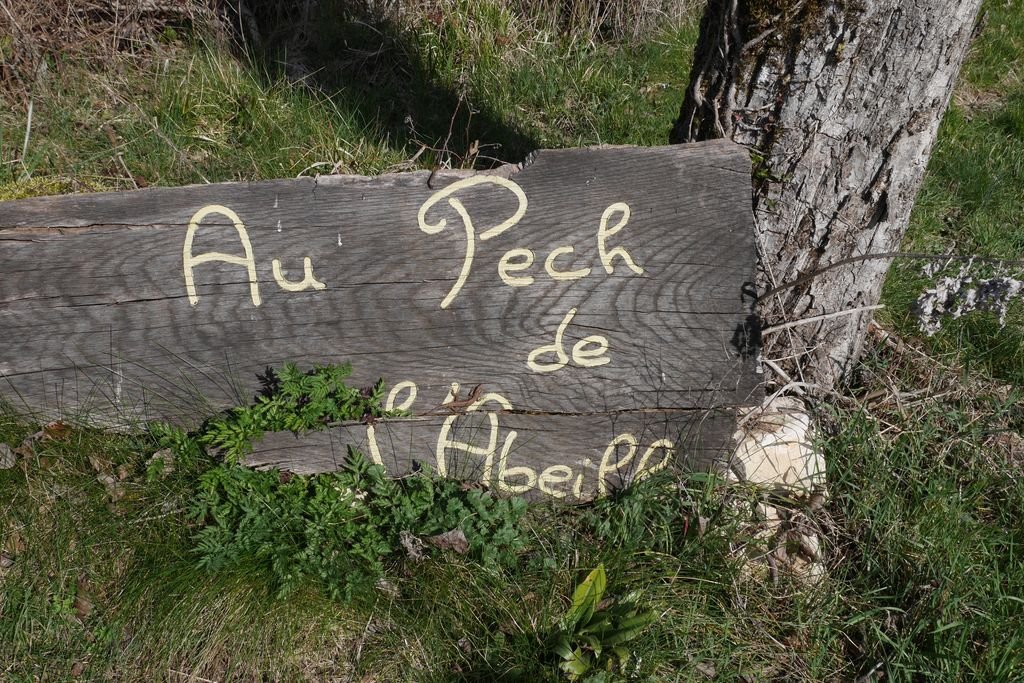 Au Pech
de
l'Abeille